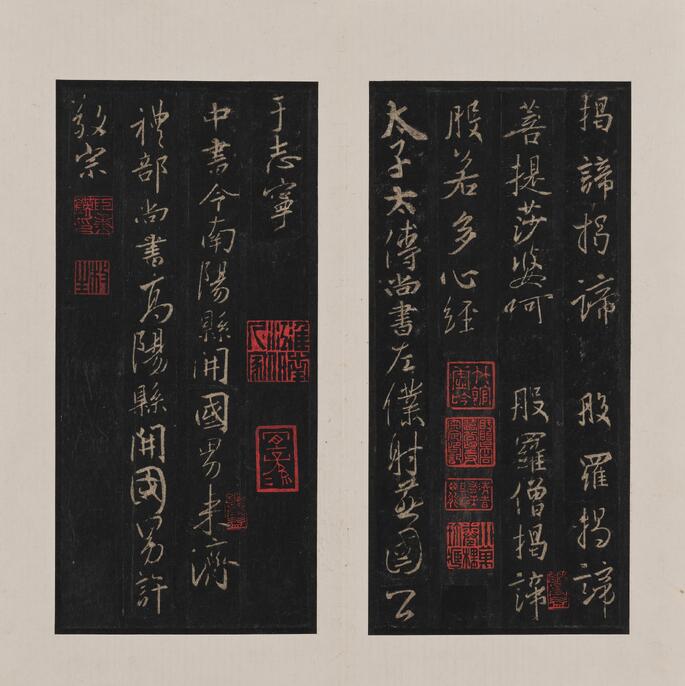 揭諦揭諦　般羅揭諦
菩提莎婆呵　般羅僧揭諦
般若多心經
太子太傅尚書左僕射燕國公
于志寧
中書令南陽縣開國男來濟
禮部尚書高陽縣開國男許
敬宗